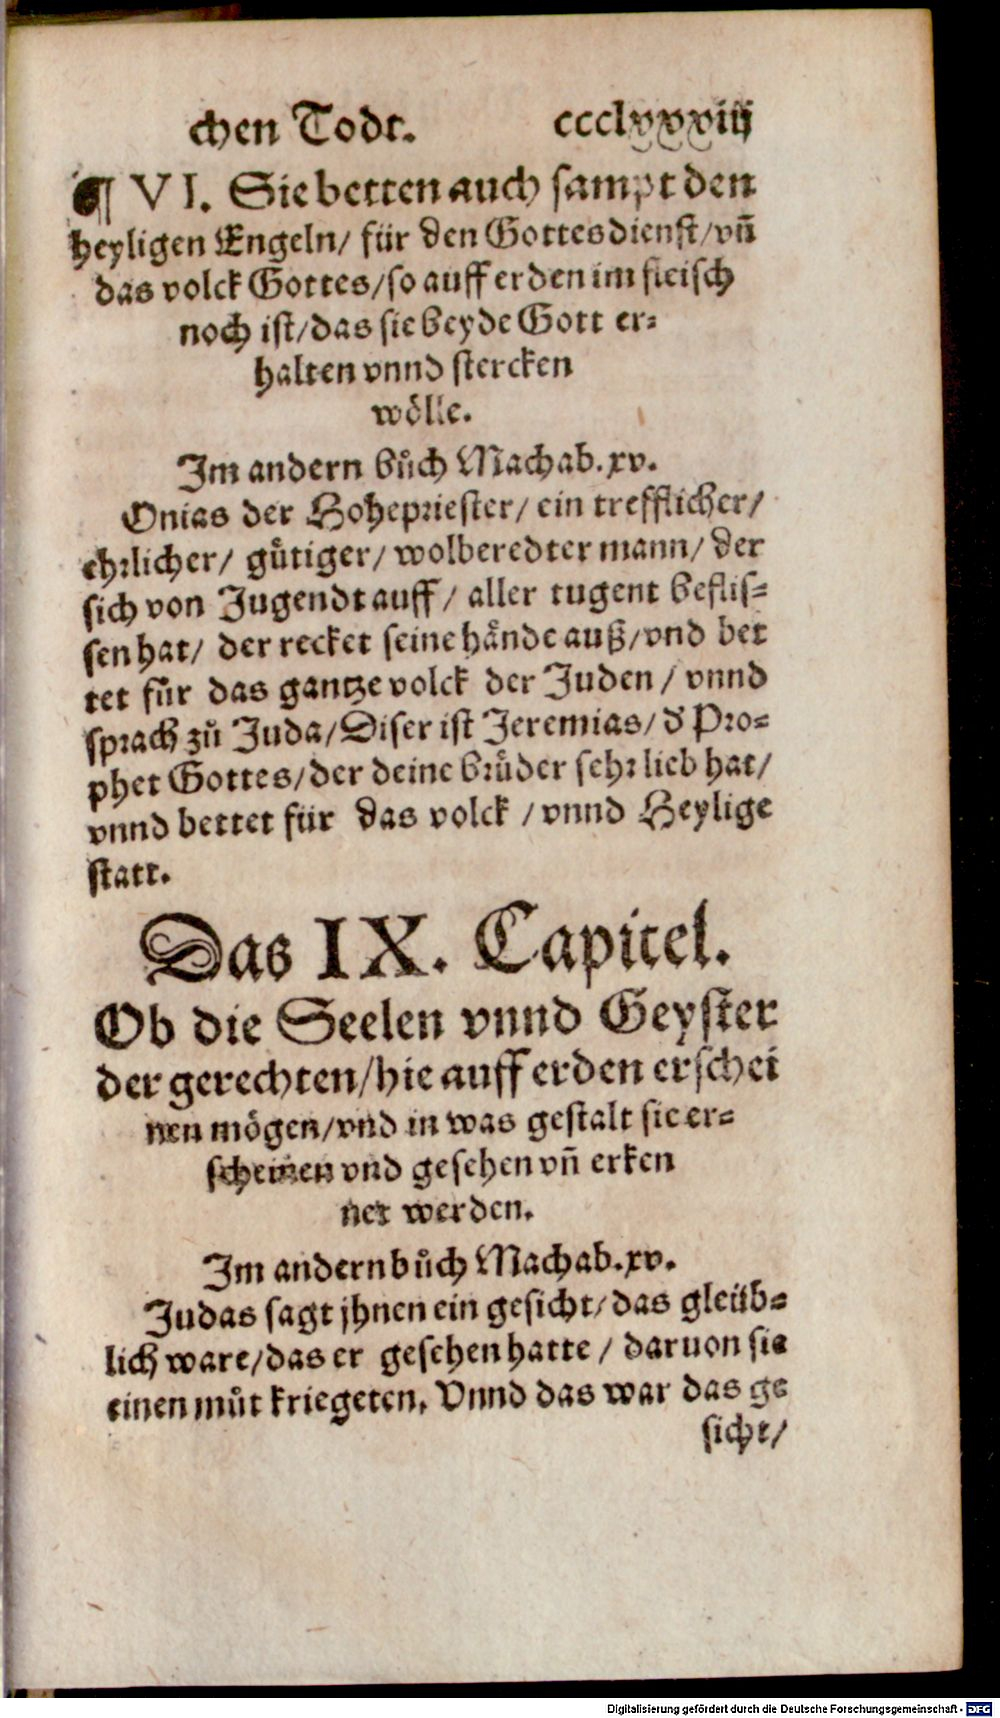 chen Todt. ccclxxxiij
¶ VI. Sie betten auch sampt den
heyligen Engeln/ für den Gottesdienst/ vñ
das volck Gottes/ so auff erden im fleisch
noch ist/ das sie beyde Gott er=
halten vnnd stercken
wölle.
Im andern bůch Machab. xv.
Onias der Hohepriester/ ein trefflicher/
ehrlicher/ gůtiger/ wolberedter mann/ der
sich von Jugendt auff/ aller tugent beflis=
sen hat/ der recket seine hånde auß/ vnd bet
tet für das gantze volck der Juden/ vnnd
sprach zů Juda/ Diser ist Jeremias/ d' Pro=
phet Gottes/ der deine brůder sehr lieb hat/
vnnd bettet für das volck/ vnnd Heylige
statt.
Das IX. Capitel.
Ob die Seelen vnnd Geyster
der gerechten/ hie auff erden erschei
nen mögen/ vnd in was gestalt sie er=
scheinen vnd gesehen vñ erken
net werden.
Im andern bůch Machab. xv.
Judas sagt jhnen ein gesicht/ das gleüb=
lich ware/ das er gesehen hatte/ daruon sie
einen můt kriegeten. Vnnd das war das ge
sicht/
Digitalisierung gefördert durch die Deutsche Forschungsgemeinschaft - DFG